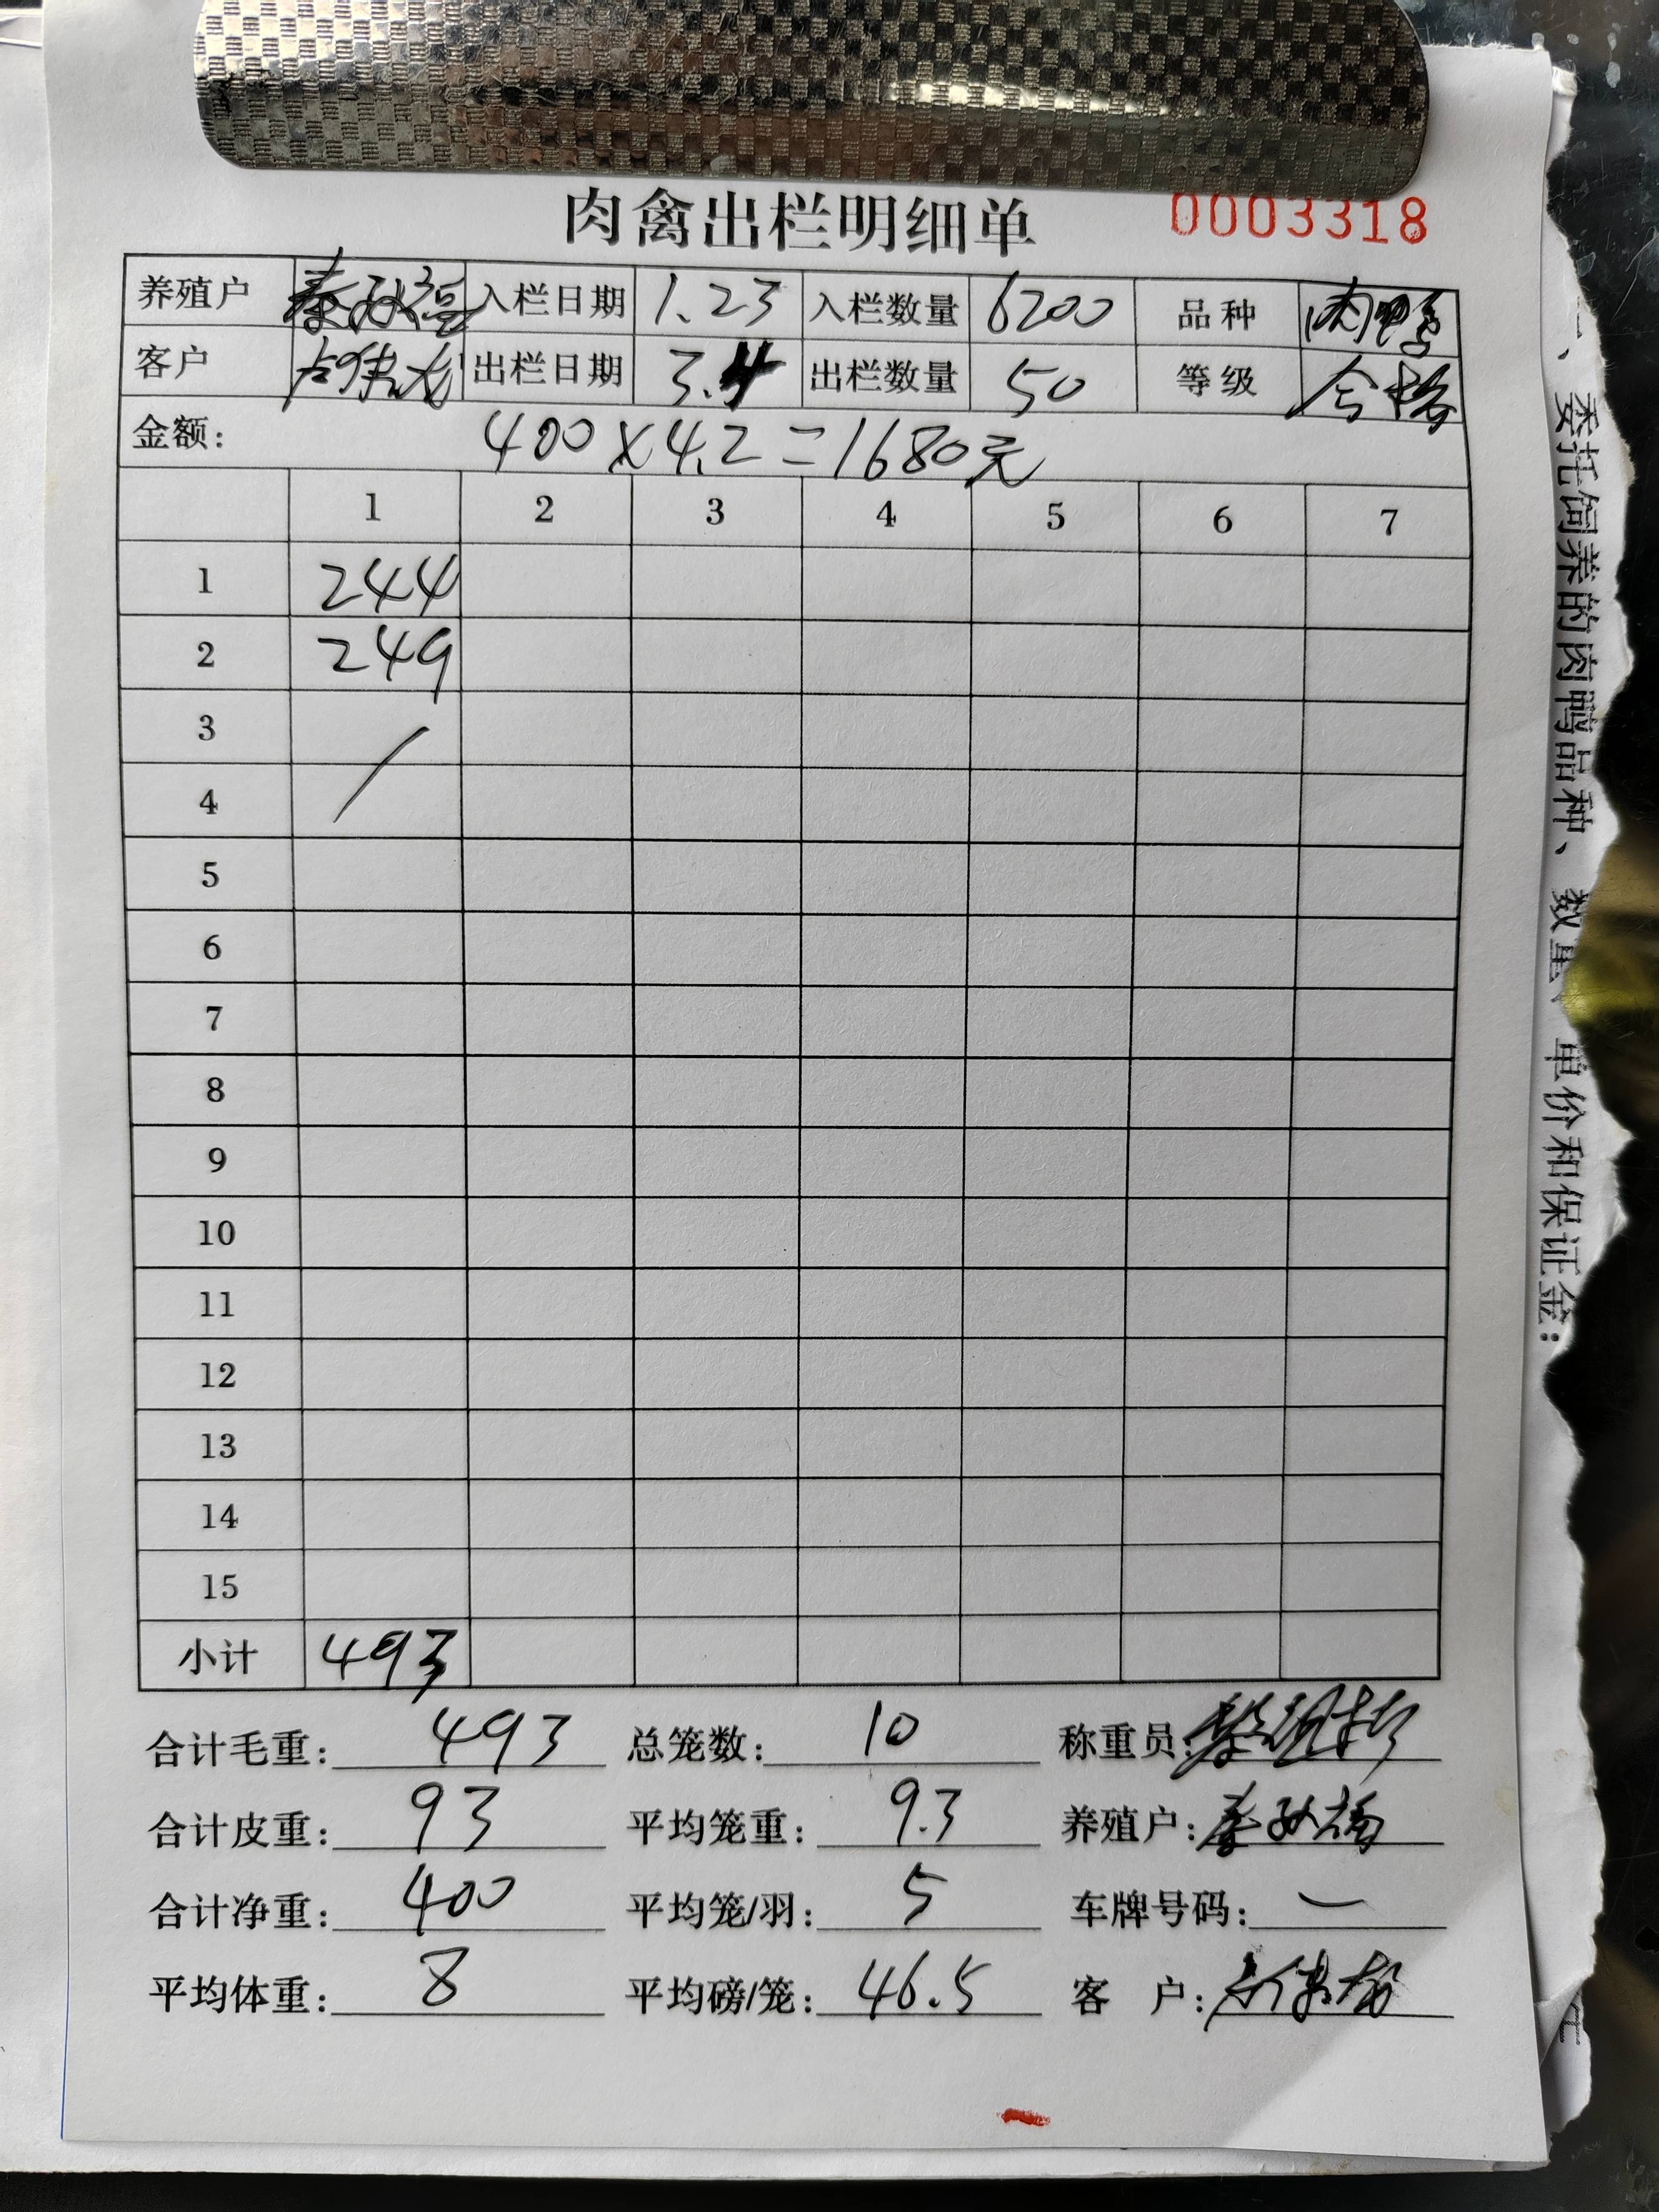 肉禽出栏明细单 0003318
养殖户 秦 入栏日期 1.23 入栏数量 6200 品种 肉鸭
客户 出栏日期 3.4 出栏数量 50 等级 合格
金额: 400×4.2=1680元
1 2 3 4 5 6 7
1 244
2 249
3 /
4
5
6
7
8
9
10
11
12
13
14
15
小计 493
合计毛重: 493 总笼数: 10 称重员:
合计皮重: 93 平均笼重: 9.3 养殖户: 秦
合计净重: 400 平均笼/羽: 5 车牌号码: —
平均体重: 8 平均磅/笼: 46.5 客 户:
、委托饲养的肉鸭品种、数量、单价和保证金: